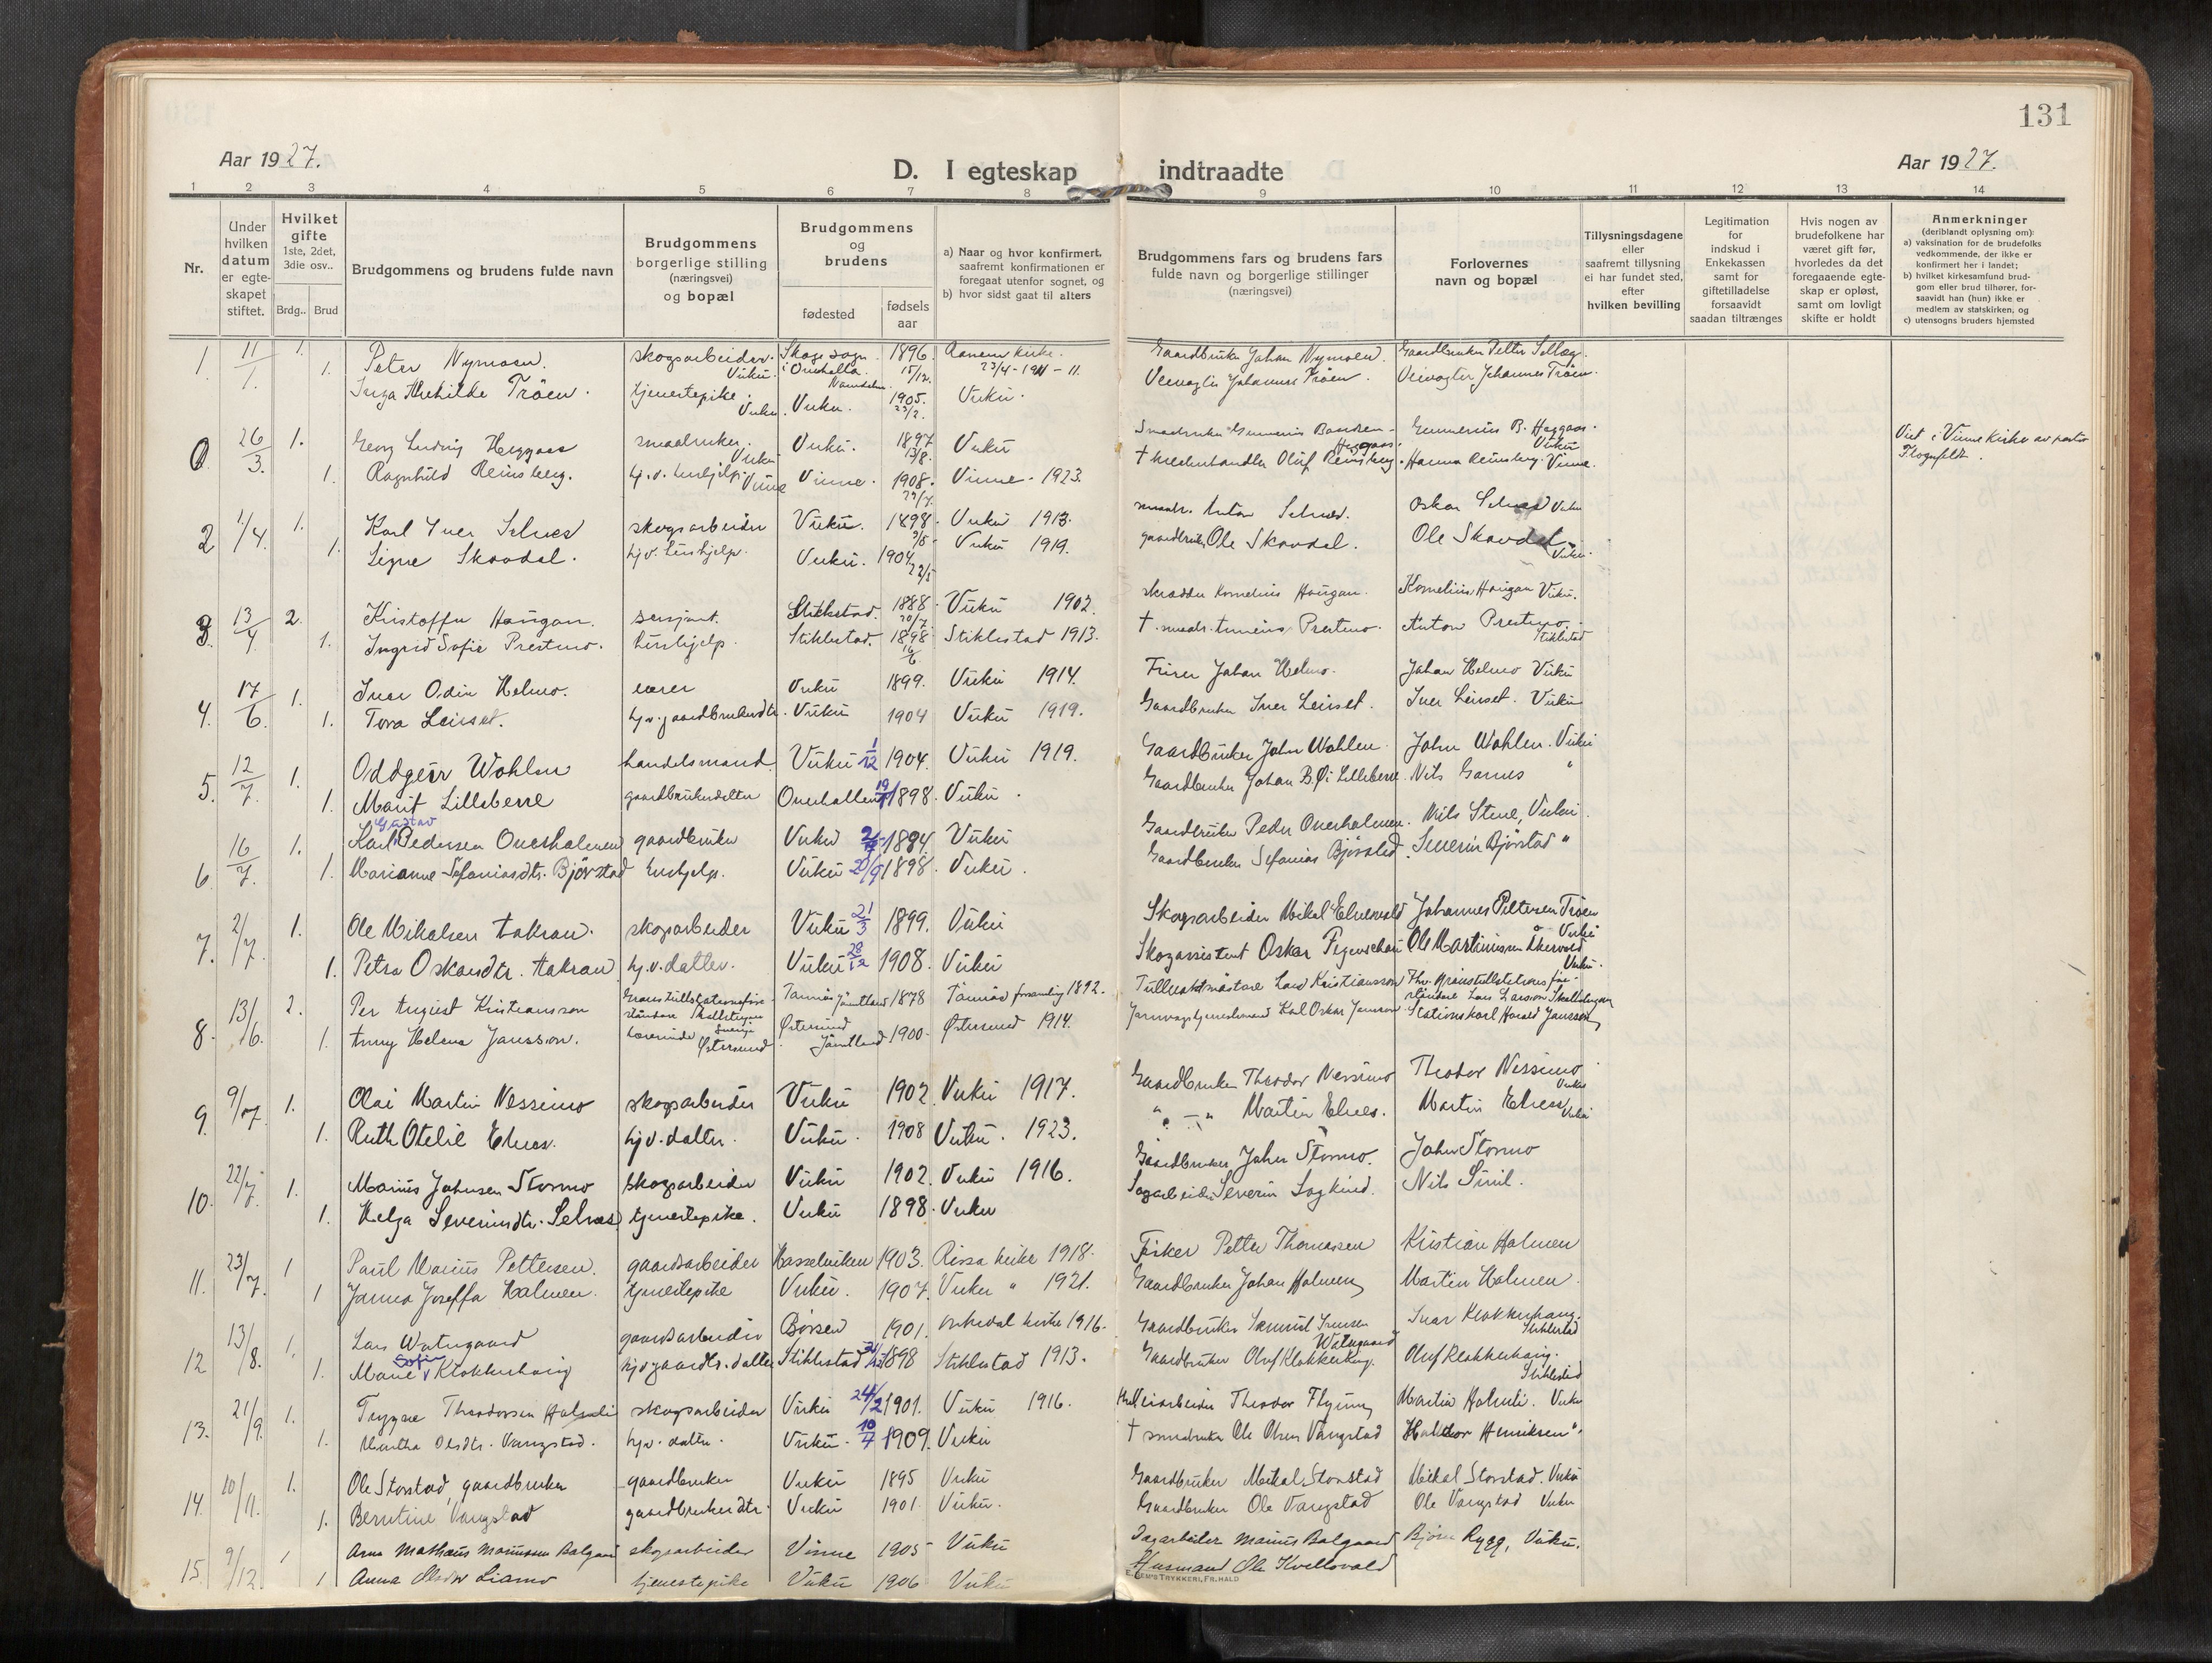 131
Aar 1927.
D. I egteskap indtraadte
Aar 1927.
1 2 3 4 5 6 7 8 9 10 11 12 13 14
Nr.
Under hvilken datum er egteskapet stiftet.
Hvilket gifte 1ste, 2det, 3die osv..
Brdg.. Brud
Brudgommens og brudens fulde navn
Brudgommens borgerlige stilling (næringsvei) og bopæl
Brudgommens og brudens
fødested
fødsels aar
a) Naar og hvor konfirmert, saafremt konfirmationen er foregaat utenfor sognet, og
b) hvor sidst gaat til alters
Brudgommens fars og brudens fars fulde navn og borgerlige stillinger (næringsvei)
Forlovernes navn og bopæl
Tillysningsdagene eller saafremt tillysning ei har fundet sted, efter hvilken bevilling
Legitimation for indskud i Enkekassen samt for giftetilladelse forsaavidt saadan tiltrænges
Hvis nogen av brudefolkene har været gift før, hvorledes da det foregaaende egteskap er opløst, samt om lovligt skifte er holdt
Anmerkninger (deriblandt oplysning om):
a) vaksination for de brudefolks vedkommende, der ikke er konfirmert her i landet;
b) hvilket kirkesamfund brudgom eller brud tilhører, forsaavidt han (hun) ikke er medlem av statskirken, og
c) utensogns bruders hjemsted
1 11/1. 1. Peter Nymoen. skogsarbeider. Vuku. Skage sogn i Overhalla Namdalen 1896. 15/12. Gaardbruker Johan Nymoen.
1. Inga Mathilde Trøen. tjenestepike. Vuku. Vuku. 1905. 23/2. Vuku. Veivogter Johannes Trøen. Veivogter Johannes Trøen.
0 26/3. 1. Georg Ludvig Heggaas smaabruker. Vuku Vuku. 1897 13/8. Vuku Gunnerius B. Heggaas. Vuku Viet i Vinne kirke av pastor
1. Ragnhild Reinsberg. hj. v. hushjelp. Vinne Vinne. 1908. 29/7. Vinne - 1923. Oluf Reinsberg. Hanna Reinsberg. Vinne.
2 1/4. 1. Karl Iver Selnes skogsarbeider Vuku. 1898. 9/5 Vuku 1913. smaabr. Anton Selnes. Oskar Selnes Vuku
1. Signe Skavdal. hj. v. hushjelp. Vuku. 1904 22/5 Vuku 1919. gaardbruker Ole Skavdal. Ole Skavdal. Vuku.
3 13/4 2. Kristoffer Haugan. sersjant. Stiklestad. 1888. 20/7. Vuku 1902. skrædder Kornelius Haugan. Kornelius Haugan Vuku.
1. Ingrid Sofie Prestmo. hushjelp. Stiklestad. 1898 16/6 Stiklestad 1913. Anton Prestmo. Stiklestad
4. 17/6. 1. Ivar Odin Helmo. Vuku 1899. Vuku 1914. Johan Helmo. Johan Helmo Vuku
1. Tora Leirset. hj. v. gaardbrukerdtr. Vuku 1904 Vuku 1919. Gaardbruker Iver Leirset. Iver Leirset. Vuku
5. 12/7. 1. Oddgeir Wohlen handelsmand. Vuku 1/12 1904. Vuku 1919. Gaardbruker John Wohlen. John Wohlen. Vuku
1. Marit Lilleberre gaardbrukerdatter Overhallen 1898. Vuku. Nils Garnes "
6. 16/7. 1. Karl Gustav Pedersen Overholmen gaardbruker Vuku 1884. Vuku Gaardbruker Peder Overholmen. Nils Stene, Vuku.
1. Marianne Sefaniasdtr. Bjørstad hushjelp. Vuku 20/9 1898. Vuku. Gaardbruker Sefanias Bjørstad. Severin Bjørstad "
7. 2/7. 1. Ole Mikalsen Aakran. skogsarbeider Vuku 21/3 1899. Vuku Skogsarbeider Mikal Elvevold Johannes Pettersen Trøen Vuku
1. Petra Oskarsdtr. Aakran hj. v. datter. Vuku 28/12 1908. Vuku Skogassistent Oskar Figenschau Ole Martinussen Åkervold Vuku.
8. 13/6. 2. Per August Kristiansson Tännäs Jämtland 1878 Tännäs församling 1892. Lars Kristiansson Lars Larsson
1. Anny Helena Jansson. Lærerinde Østersund Østersund Jämtland 1900. Østersund 1914. Karl Oskar Jansson. Stationskarl Harald Jansson
9. 9/7. 1. Olai Martin Nessimo skogsarbeider Vuku 1902. Vuku 1917. Gaardbruker Theodor Nessimo Theodor Nessimo Vuku
1. Ruth Otelie Elnes. hj. v. datter. Vuku. 1908 Vuku. 1923. " — " Martin Elnes. Martin Elnes Vuku
10. 22/7. 1. Marius Johnsen Stormo skogsarbeider Vuku 1902. Vuku 1916. Gaardbruker John Stormo. John Stormo
1. Helga Severinsdtr. Selnes tjenestepike. Vuku 1898. Vuku Sagarbeider Severin Nils Siril.
11. 23/7. 1 Paul Marius Pettersen. gaardsarbeider Hasselviken 1903. Rissa kirke 1918. Fisker Petter Thomassen Kristian Holmen
1 Janna Joseffa Holmen. tjenestepike Vuku. 1907. Vuku " 1921. Gaardbruker Johan Holmen Martin Holmen.
12 13/8. 1. Lars Watngaard gaardsarbeider Børsen 1901. Orkedal kirke 1916. Gaardbruker Watngaard Ivar Klokkerhaug. Stiklestad
1. Marie Sofie Klokkerhaug hj. v. gaardbr. datter Stiklestad 1898 Stiklestad 1913. Gaardbruker Oluf Klokkerhaug. Oluf Klokkerhaug. Stiklestad
13. 21/9. 1. Trygve Theodorsen Holmli skogsarbeider Vuku 24/2 1901. Vuku 1916. Veiarbeider Theodor Martin Holmli. Vuku
1. Olesdtr. Vangstad. hj. v. datter. Vuku. 10/4 1909. Vuku † smaabruker Ole Olsen Vangstad Halvdor Henriksen ".
14. 10/11. 1. Ole Storstad, gaardbruker gaardbruker Vuku 1895 Vuku Gaardbruker Mikal Storstad Mikal Storstad. Vuku
1. Berntine Vangstad gaardbrukerdtr. Vuku 1901. Vuku. Gaardbruker Ole Vangstad Ole Vangstad Vuku
15. 9/12 1 Arne Mathæus Mariussen Balgaard skogsarbeider Vinne 1905 Vuku Dagarbeider Marius Balgaard Bjørn Rygg, Vuku.
1 Anna Liamo tjenestepike Vuku 1906 Vuku Husmand Ole Kvellovald
E. SEM'S TRYKKERI, FR.HALD